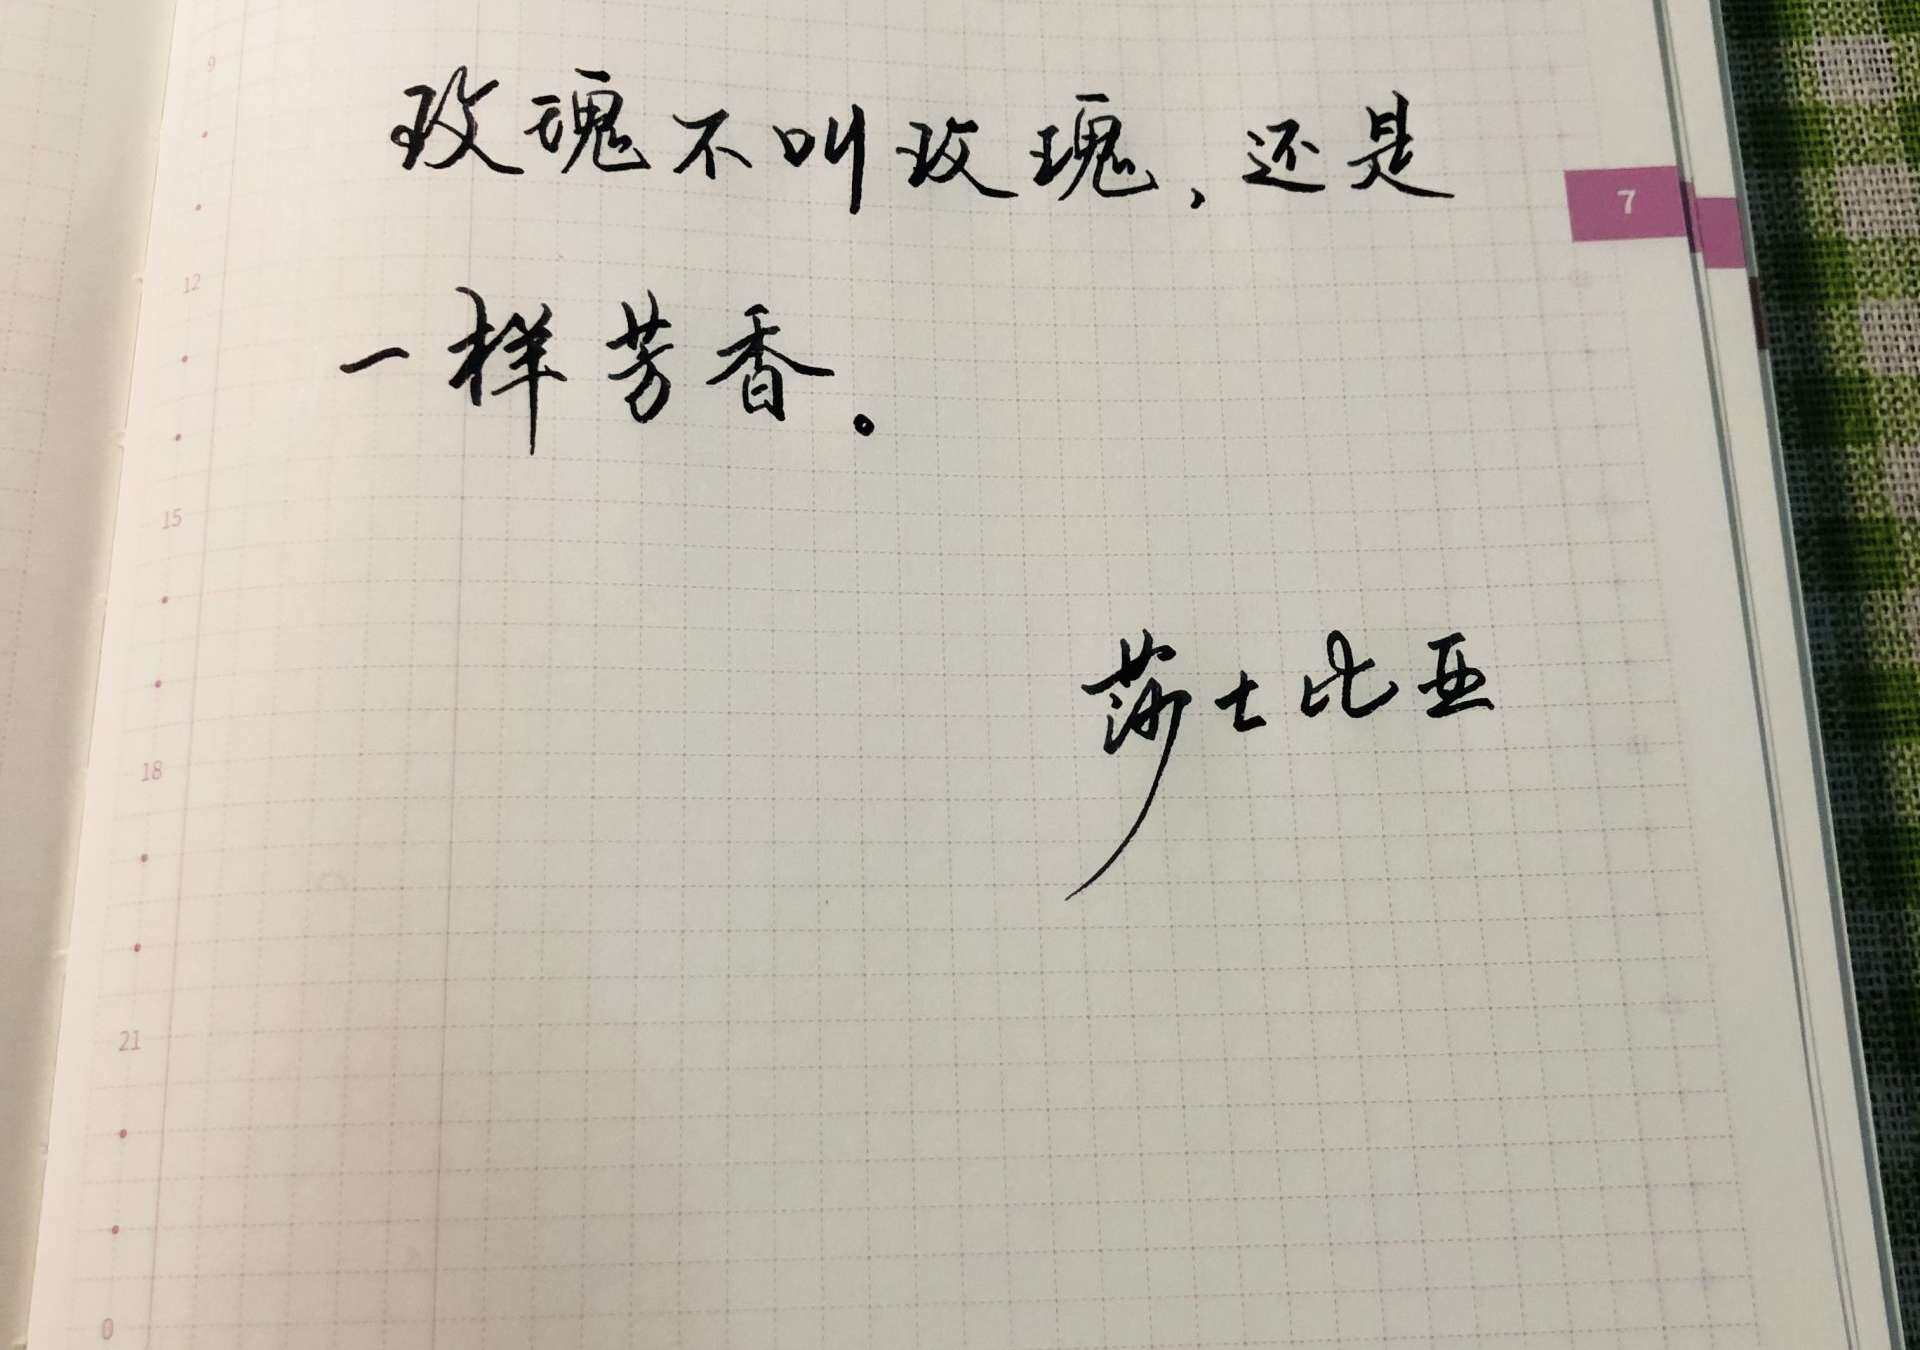 9
玫瑰不叫玫瑰，还是
7
12
一样芳香。
15
莎士比亚
18
21
0